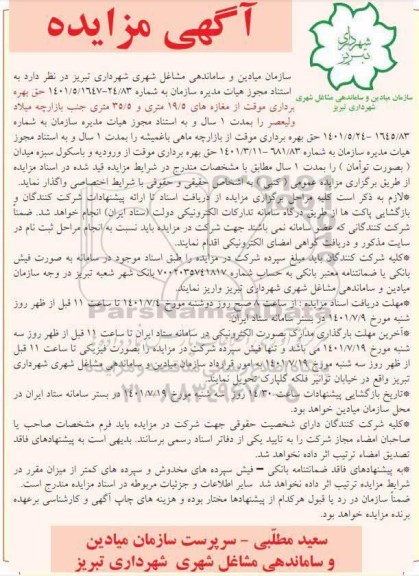 آگهی مزایده
شهرداری تبریز
سازمان میادین و ساماندهی مشاغل شهری
شهرداری تبریز
سازمان میادین و ساماندهی مشاغل شهری شهرداری تبریز در نظر دارد به
استناد مجوز هیات مدیره سازمان به شماره ۲۴/۸۳-۱۴۰۱/۵/۱۶۴۷ حق بهره
برداری موقت از مغازه های ۱۹/۵ متری و ۳۵/۵ متری جنب بازارچه میلاد
ولیعصر را بمدت ۱ سال و به استناد مجوز هیات مدیره سازمان به شماره
۱۶۴۵/۸۳ -۱۴۰۱/۵/۲۴ حق بهره برداری موقت از بازارچه ماهی باغمیشه را بمدت ۱ سال و به استناد مجوز
هیات مدیره سازمان به شماره ۶۸۱/۸۳ -۱۴۰۱/۳/۱۱ حق بهره برداری موقت از ورودیه و باسکول سبزه میدان
( بصورت توأمان ) را بمدت ۱ سال مطابق با مشخصات مندرج در شرایط مزایده قید شده در اسناد مزایده
از طریق برگزاری مزایده عمومی ( کتبی ) به اشخاص حقیقی و حقوقی با شرایط اختصاصی واگذار نماید.
*لازم به ذکر است کلیه مراحل برگزاری مزایده از دریافت اسناد تا ارائه پیشنهادات شرکت کنندگان و
بازگشایی پاکت ها از طریق درگاه سامانه تدارکات الکترونیکی دولت (ستاد ایران) انجام خواهد شد. ضمناً
شرکت کنندگانی که عضو سامانه نمی باشند جهت شرکت در مزایده باید نسبت به انجام مراحل ثبت نام در
سایت مذکور و دریافت گواهی امضای الکترونیکی اقدام نمایند.
*کلیه شرکت کنندگان باید مبلغ سپرده شرکت در مزایده را طبق اسناد موجود در سامانه به صورت فیش
بانکی یا ضمانتنامه معتبر بانکی به حساب شماره ۷۰۰۲۰۳۵۷۴۱۸۱۷ بانک شهر شعبه تبریز در وجه سازمان
میادین و ساماندهی مشاغل شهری شهرداری تبریز واریز نمایند.
*مهلت دریافت اسناد مزایده : از ساعت ۸ صبح روز دوشنبه مورخ ۱۴۰۱/۷/۴ تا ساعت ۱۱ قبل از ظهر روز
شنبه مورخ ۱۴۰۱/۷/۹ در بستر سامانه ستاد ایران
*آخرین مهلت بارگذاری مدارک بصورت الکترونیکی در سامانه ستاد ایران تا ساعت ۱۱ قبل از ظهر روز سه
شنبه مورخ ۱۴۰۱/۷/۱۹ می باشد و تنها فیش سپرده شرکت در مزایده را بصورت فیزیکی تا ساعت ۱۱ قبل
از ظهر روز سه شنبه مورخ ۱۴۰۱/۷/۱۹ به امور قرارداد سازمان میادین و ساماندهی مشاغل شهری شهرداری
تبریز واقع در خیابان توانیر فلکه گلپارک تحویل نمایند.
*تاریخ بازگشایی پیشنهادات ساعت ۱۴/۳۰ روز سه شنبه مورخ ۱۴۰۱/۷/۱۹ در بستر سامانه ستاد ایران در
محل سازمان میادین خواهد بود.
*کلیه شرکت کنندگان دارای شخصیت حقوقی جهت شرکت در مزایده باید فرم مشخصات صاحب یا
صاحبان امضاء مجاز شرکت را به تایید یکی از دفاتر اسناد رسمی برسانند. بدیهی است به پیشنهادهای فاقد
تصدیق امضاء ترتیب اثر داده نخواهد شد.
*به پیشنهادهای فاقد ضمانتنامه بانکی – فیش سپرده های مخدوش و سپرده های کمتر از میزان مقرر در
شرایط مزایده ترتیب اثر داده نخواهد شد سایر اطلاعات و جزئیات مربوطه در اسناد مزایده مندرج است.
ضمناً سازمان در رد یا قبول هرکدام از پیشنهادها مختار بوده و هزینه های چاپ آگهی و کارشناسی برعهده
برنده مزایده خواهد بود.
سعید مطلّبی - سرپرست سازمان میادین
و ساماندهی مشاغل شهری شهرداری تبریز